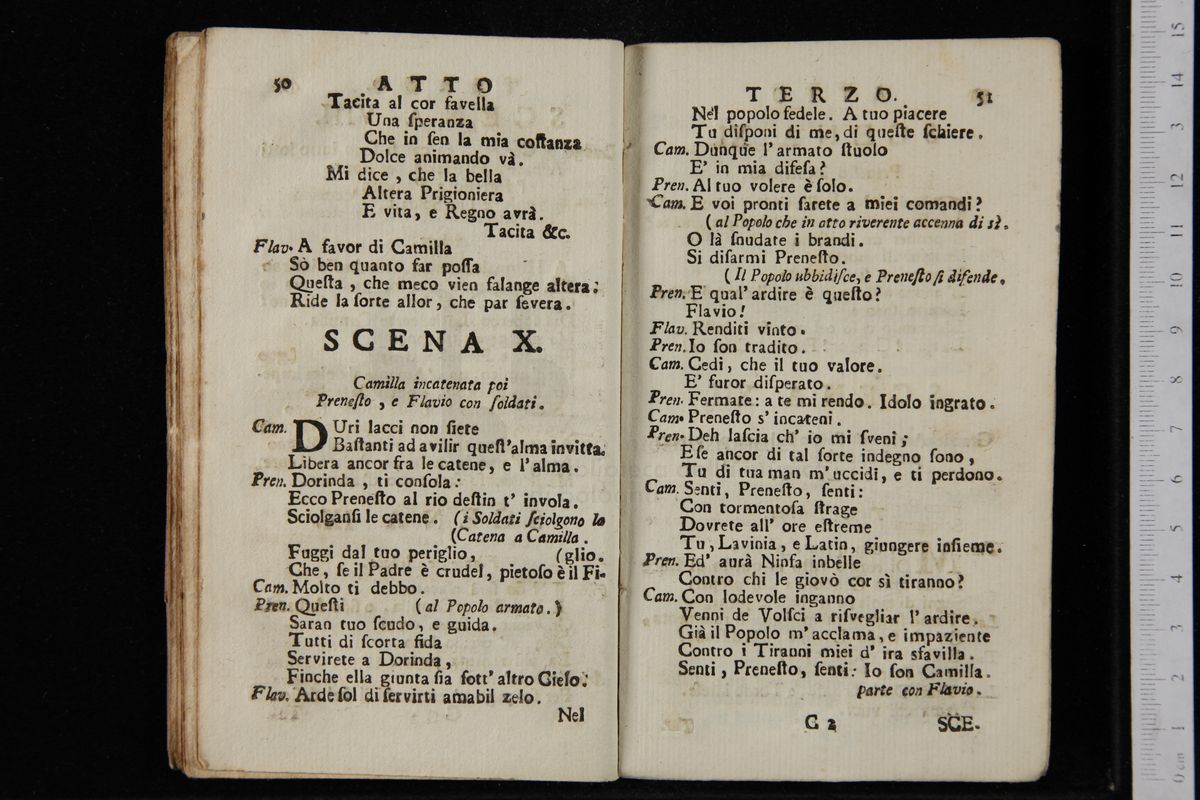 50 ATTO
Tacita al cor favella
Una ſperanza
Che in ſen la mia coſtanza
Dolce animando và.
Mi dice , che la bella
Altera Prigioniera
E vita, e Regno avrà.
Tacita &c.
Flav. A favor di Camilla
Sò ben quanto far poſſa
Queſta , che meco vien falange altera;
Ride la ſorte allor, che par ſevera.
SCENA X.
Camilla incatenata poi
Preneſto , e Flavio con ſoldati.
Cam. DUri lacci non ſiete
Baſtanti ad avilir queſt'alma invitta.
Libera ancor fra le catene, e l'alma.
Pren. Dorinda , ti conſola:
Ecco Preneſto al rio deſtin t' invola.
Sciolganſi le catene. (i Soldati ſciolgono la
(Catena a Camilla.
Fuggi dal tuo periglio, (glio.
Che, ſe il Padre è crudel, pietoſo è il Fi-
Cam. Molto ti debbo.
Pren. Queſti (al Popolo armato.)
Saran tuo ſcudo, e guida.
Tutti di ſcorta fida
Servirete a Dorinda,
Finche ella giunta ſia ſott' altro Cielo.
Flav. Arde ſol di ſervirti amabil zelo.
Nel
TERZO. 51
Nel popolo fedele. A tuo piacere
Tu diſponi di me, di queſte ſchiere.
Cam. Dunque l'armato ſtuolo
E' in mia difeſa?
Pren. Al tuo volere è ſolo.
Cam. E voi pronti ſarete a miei comandi?
(al Popolo che in atto riverente accenna di sì.
O là ſnudate i brandi.
Si diſarmi Preneſto.
(Il Popolo ubbidiſce, e Preneſto ſi difende.
Pren. E qual' ardire è queſto?
Flavio!
Flav. Renditi vinto.
Pren. Io ſon tradito.
Cam. Cedi, che il tuo valore.
E' furor diſperato.
Pren. Fermate: a te mi rendo. Idolo ingrato.
Cam. Preneſto s' incateni.
Pren. Deh laſcia ch' io mi ſveni;
E ſe ancor di tal ſorte indegno ſono,
Tu di tua man m' uccidi, e ti perdono.
Cam. Senti, Preneſto, ſenti:
Con tormentoſa ſtrage
Dovrete all' ore eſtreme
Tu, Lavinia, e Latin, giungere inſieme.
Pren. Ed' aurà Ninfa inbelle
Contro chi le giovò cor sì tiranno?
Cam. Con lodevole inganno
Venni de Volſci a riſvegliar l' ardire.
Già il Popolo m' acclama, e impaziente
Contro i Tiranni miei d' ira sfavilla.
Senti, Preneſto, ſenti: Io ſon Camilla.
parte con Flavio.
G 2 SCE-
0 cm 1 2 3 4 5 6 7 8 9 10 11 12 13 14 15